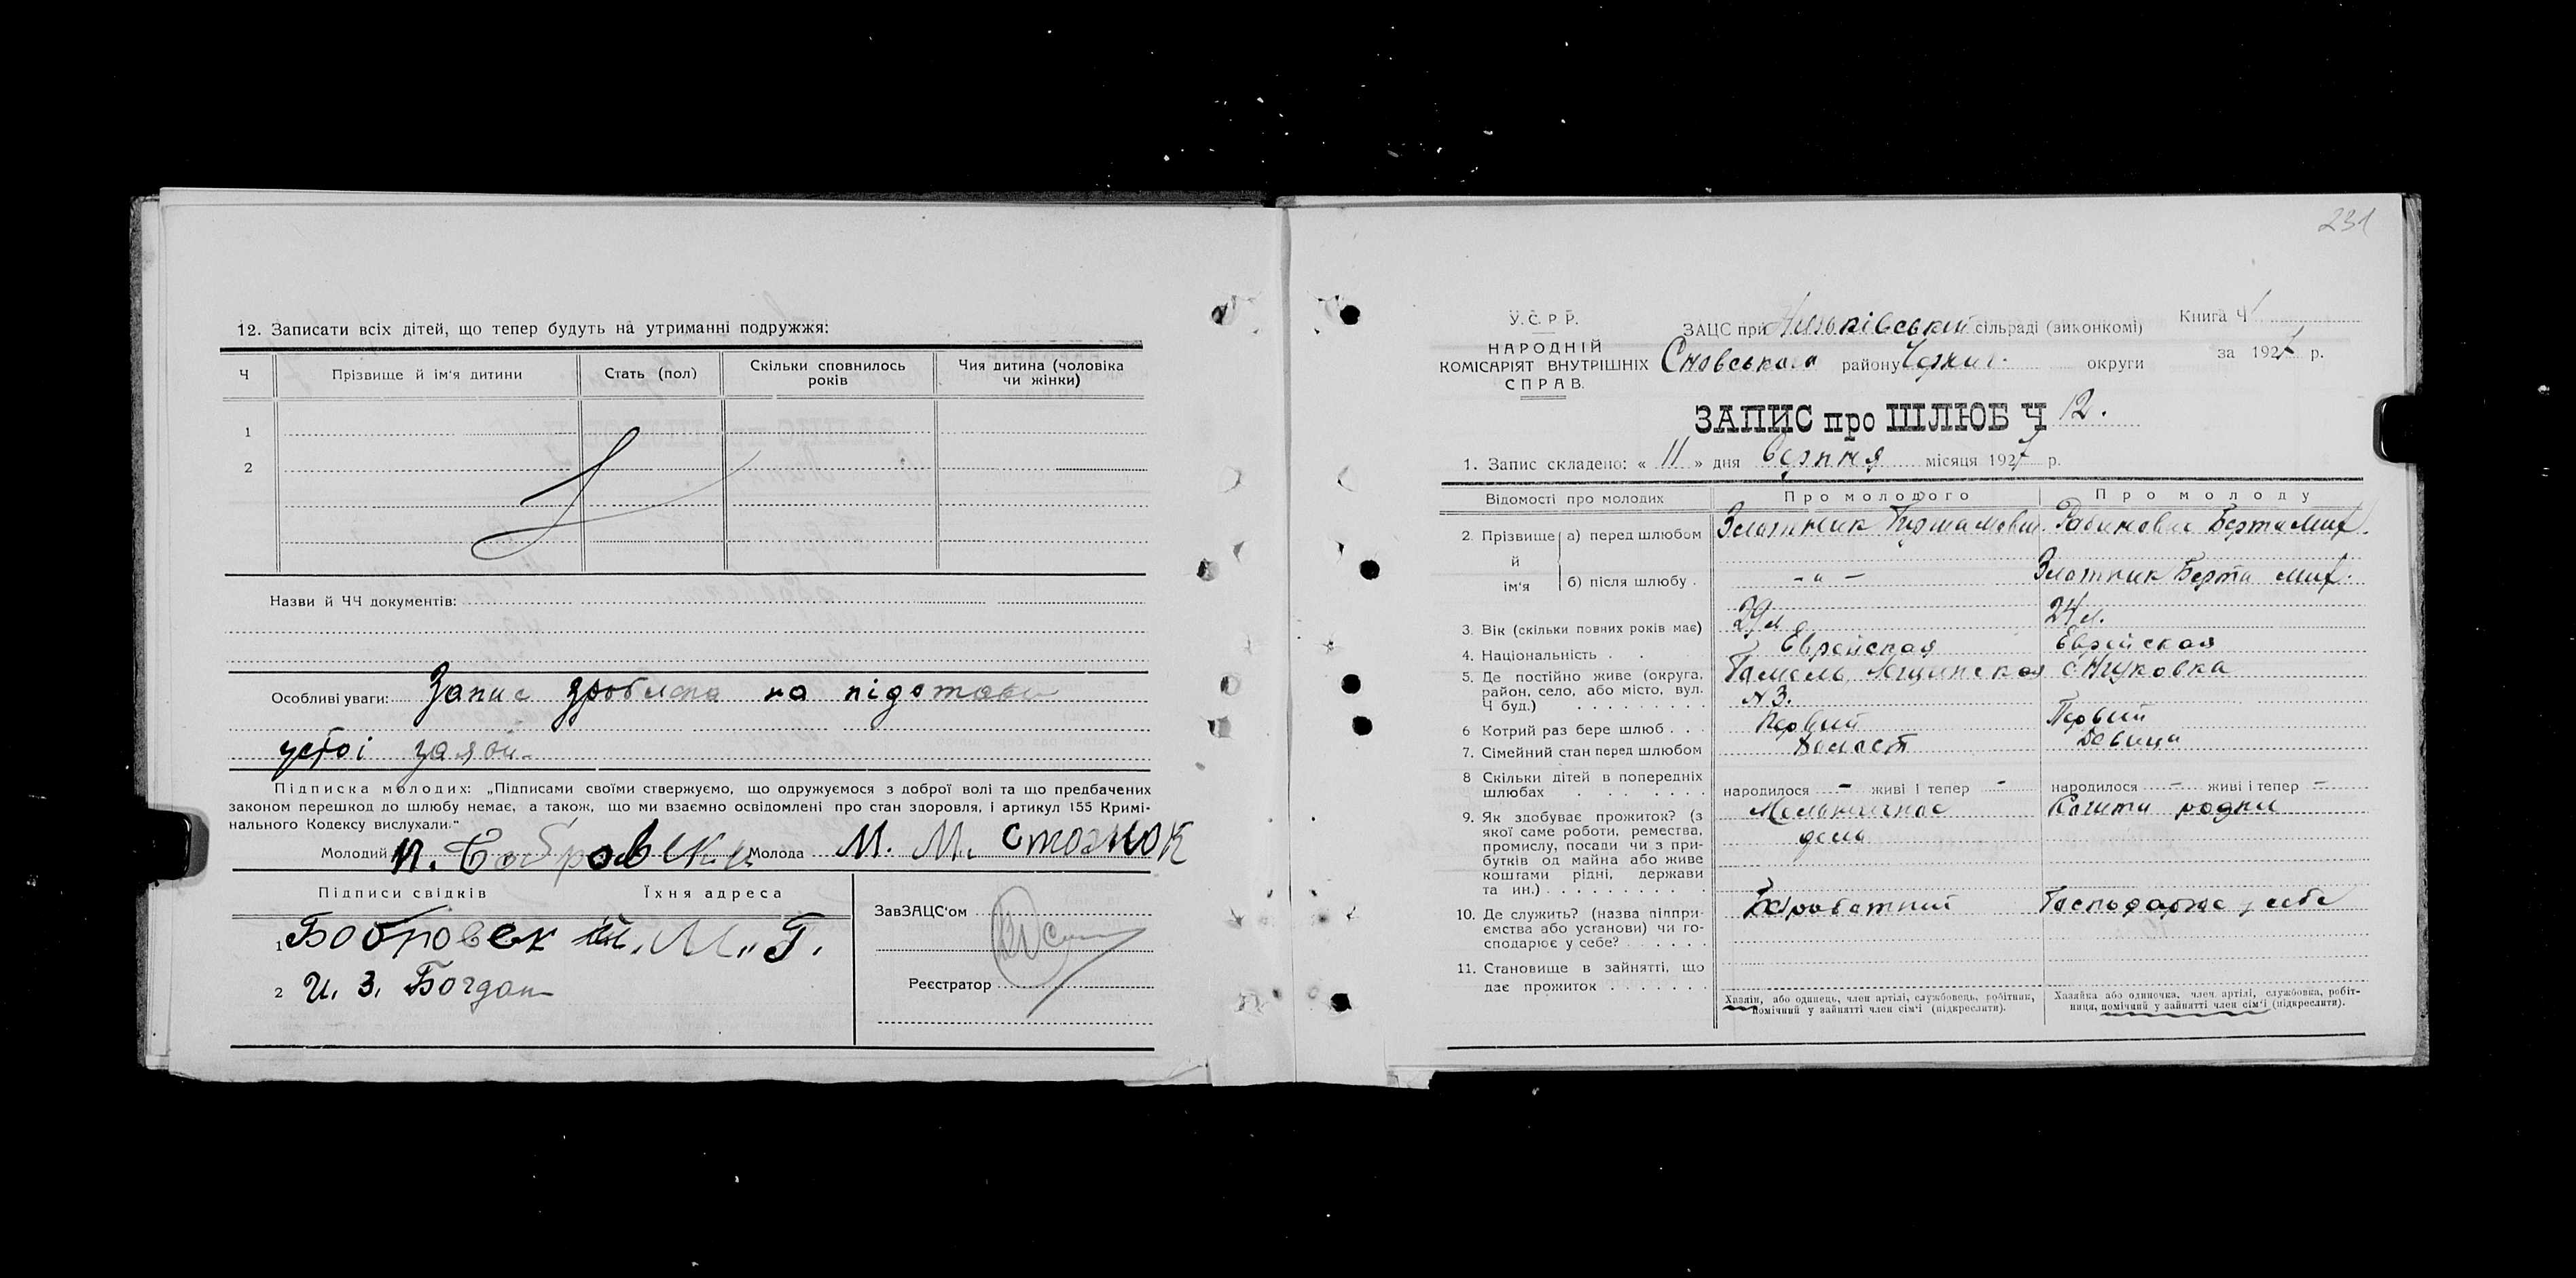 12. Записати всіх дітей, що тепер будуть на утриманні подружжя:
Ч
Прізвище й ім'я дитини
Стать (пол)
Скільки сповнилось
років
Чия дитина (чоловіка
чи жінки)
1
2
Назви й ЧЧ документів:
Особливі уваги: Запис зроблено на підставі
заяви
Підписка молодих: „Підписами своїми ствержуємо, що одружуємося з доброї волі та що предбачених
законом перешкод до шлюбу немає, а також, що ми взаємно освідомлені про стан здоровля, і артикул 155 Кримі-
нального Кодексу вислухали."
Молодий
Молода М. М.
Підписи свідків
Їхня адреса
1 Бобровск М. Г.
2 И. З. Богдан
ЗавЗАЦС'ом
Реєстратор
231
У. С. Р Р.
НАРОДНІЙ
КОМІСАРІЯТ ВНУТРІШНІХ
СПРАВ.
ЗАЦС при сільраді (виконкомі)
Сновського району Черниг. округи
Книга Ч
за 1927 р.
ЗАПИС про ШЛЮБ Ч 12.
1. Запис складено: « 11 » дня серпня місяця 1927 р.
Відомості про молодих
Про молодого
Про молоду
2 Прізвище
й
ім'я
а) перед шлюбом
Злотник
Рабинович Берта Мих.
б) після шлюбу
- „ -
Злотник Берта Мих.
3. Вік (скільки повних років має)
29 л
24 л.
4. Національність
Еврейская
Еврейская
5. Де постійно живе (округа,
район, село, або місто, вул.
Ч буд.)
Гомель
N 3.
с Жуковка
6 Котрий раз бере шлюб
Первий
Первий
7. Сімейний стан перед шлюбом
Холост
Девица
8 Скільки дітей в попередніх
шлюбах
народилося - живі і тепер -
народилося - живі і тепер -
9. Як здобуває прожиток? (з
якої саме роботи, ремества,
промислу, посади чи з при-
бутків од майна або живе
коштами рідні, держави
та ин.)
Мельничное
дело
Кошти родни
10. Де служить? (назва підпри-
ємства або установи) чи го-
сподарює у себе?
Безработний
Господарює у себе
11. Становище в зайнятті, що
дає прожиток
Хазяїн, або одинець, член артілі, службовець, робітник,
помічний у зайнятті член сім'ї (підкреслити).
Хазяйка або одиночка, член артілі, службовка, робіт-
ниця, помічний у зайнятті член сім'ї (підкреслити).